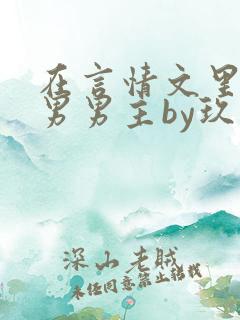 在言情文里
男男主by玖
深山老贼
未经同意禁止转载